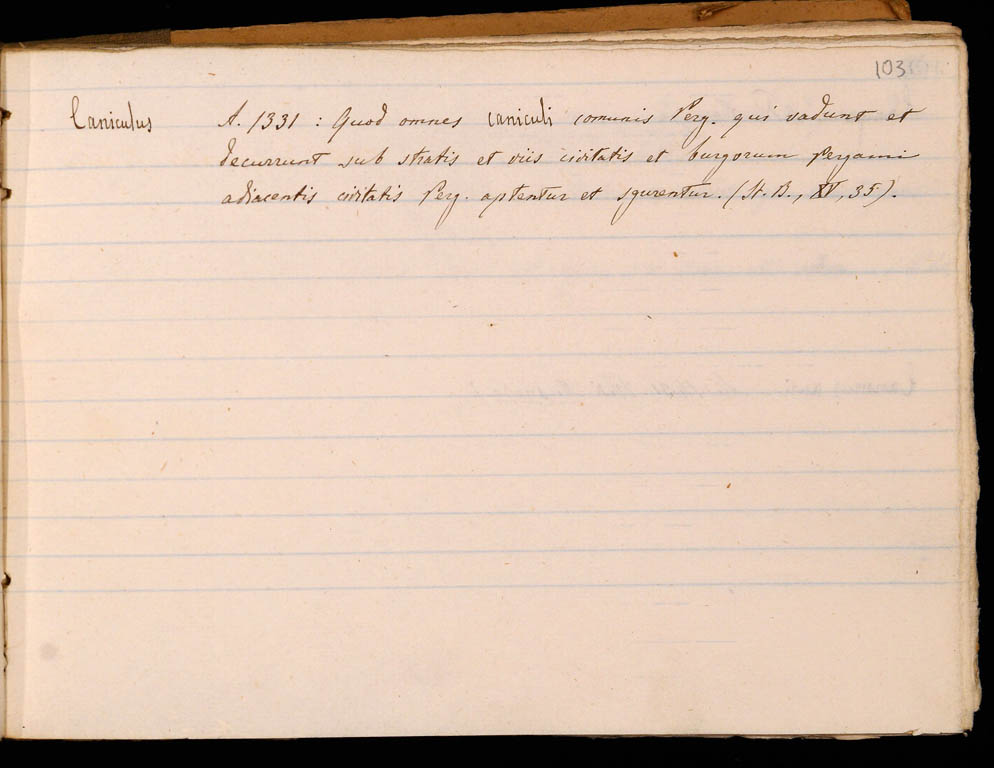 103
Caniculus A. 1331 : Quod omnes caniculi comunis Perg. qui vadunt et
decurrunt sub stratis et viis civitatis et burgorum Pergami
adiacentis civitatis Perg. aptentur et sgurentur. (St. B., XV, 35).